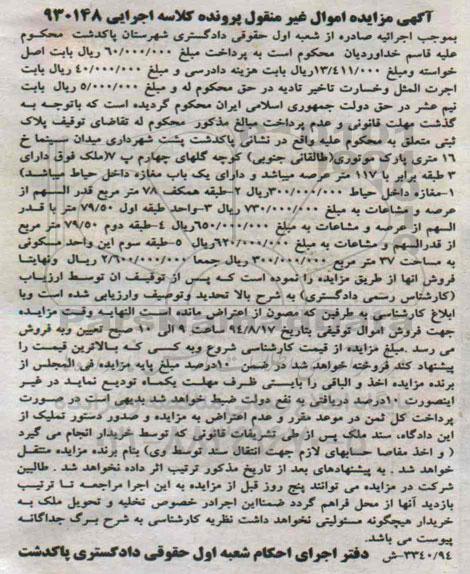 آگهی مزایده اموال غیر منقول پرونده کلاسه اجرایی ۹۳۰۱۴۸
بموجب اجرائیه صادره از شعبه اول حقوقی دادگستری شهرستان پاکدشت محکوم
علیه قاسم خداوردیان محکوم است به پرداخت مبلغ ۶۰/۰۰۰/۰۰۰ ریال بابت اصل
خواسته ومبلغ ۱۳/۴۱۱/۰۰۰ریال بابت هزینه دادرسی و مبلغ ۴۰/۰۰۰/۰۰۰ ریال بابت
اجرت المثل وخسارت تاخیر تادیه در حق محکوم له و مبلغ ۵/۰۰۰/۰۰۰ ریال بابت
نیم عشر در حق دولت جمهوری اسلامی ایران محکوم گردیده است که باتوجه به
گذشت مهلت قانونی و عدم پرداخت مبالغ مذکور محکوم له تقاضای توقیف پلاک
ثبتی متعلق به محکوم علیه واقع در نشانی پاکدشت پشت شهرداری میدان سینما خ
۱۶ متری پارک موتوری(طالقانی جنوبی) کوچه گلهای چهارم پ ۷(ملک فوق دارای
۳ طبقه برابر با ۱۱۷ متر عرصه میباشد و دارای یک باب مغازه داخل حیاط میباشد)
۱-مغازه داخل حیاط ۳۰۰/۰۰۰/۰۰۰ریال ۲-طبقه همکف ۷۸ متر مربع قدر السهم از
عرصه و مشاعات به مبلغ ۷۳۰/۰۰۰/۰۰۰ ریال ۳-واحد طبقه اول ۷۹/۵۰ متر با قدر
السهم از عرصه و مشاعات به مبلغ ۶۵۰/۰۰۰/۰۰۰ریال ۴-طبقه دوم ۷۹/۵۰ متر مربع
از قدرالسهم و مشاعات به مبلغ ۶۲۰/۰۰۰/۰۰۰ریال ۵-طبقه سوم این واحد مسکونی
به مساحت ۳۷ متر مربع ۳۰۰/۰۰۰/۰۰۰ ریال جمعا ۲/۶۰۰/۰۰۰/۰۰۰ ریال ونهایتا
فروش انها از طریق مزایده را نموده است که پس از توقیف ان توسط ارزیاب
(کارشناس رسمی دادگستری) به شرح بالا تحدید وتوصیف وارزیابی شده است وبا
ابلاغ کارشناسی به طرفین که مصون از اعتراض مانده است النهایه وقت مزایده
جهت فروش اموال توقیفی بتاریخ ۹۴/۸/۱۷ ساعت ۹ الی ۱۰ صبح تعیین وبه فروش
می رسد .مبلغ مزایده از قیمت کارشناسی شروع وبه کسی که بالاترین قیمت را
پیشنهاد کند فروخته خواهد شد در ضمن ۱۰درصد مبلغ پایه مزایده فی المجلس از
برنده مزایده اخذ و الباقی را بایستی ظرف مهلت یکماه تودیع نماید در غیر
اینصورت ۱۰درصد دریافتی به نفع دولت ضبط خواهد شد بدیهی است در صورت
پرداخت کل ثمن در موعد مقرر و عدم اعتراض به مزایده و صدور دستور تملیک از
این دادگاه، سند ملک پس از طی تشریفات قانونی که توسط خریدار انجام می گیرد
( و اخذ مفاصا حسابهای لازم جهت انتقال سند توسط وی) بنام برنده مزایده منتقل
خواهد شد . به پیشنهادهای بعد از تاریخ مذکور ترتیب اثر داده نخواهد شد . طالبین
شرکت در مزایده می توانند پنج روز قبل از مزایده به این اجرا مراجعه تا ترتیب
بازدید آنها از محل فراهم گردد ضمنااین اجرادر خصوص تخلیه و تحویل ملک به
خریدار هیچگونه مسئولیتی نخواهد داشت نظریه کارشناسی به شرح برگ جداگانه
پیوست می باشد.
۳۳۴۰/۹۴-ش دفتر اجرای احکام شعبه اول حقوقی دادگستری پاکدشت